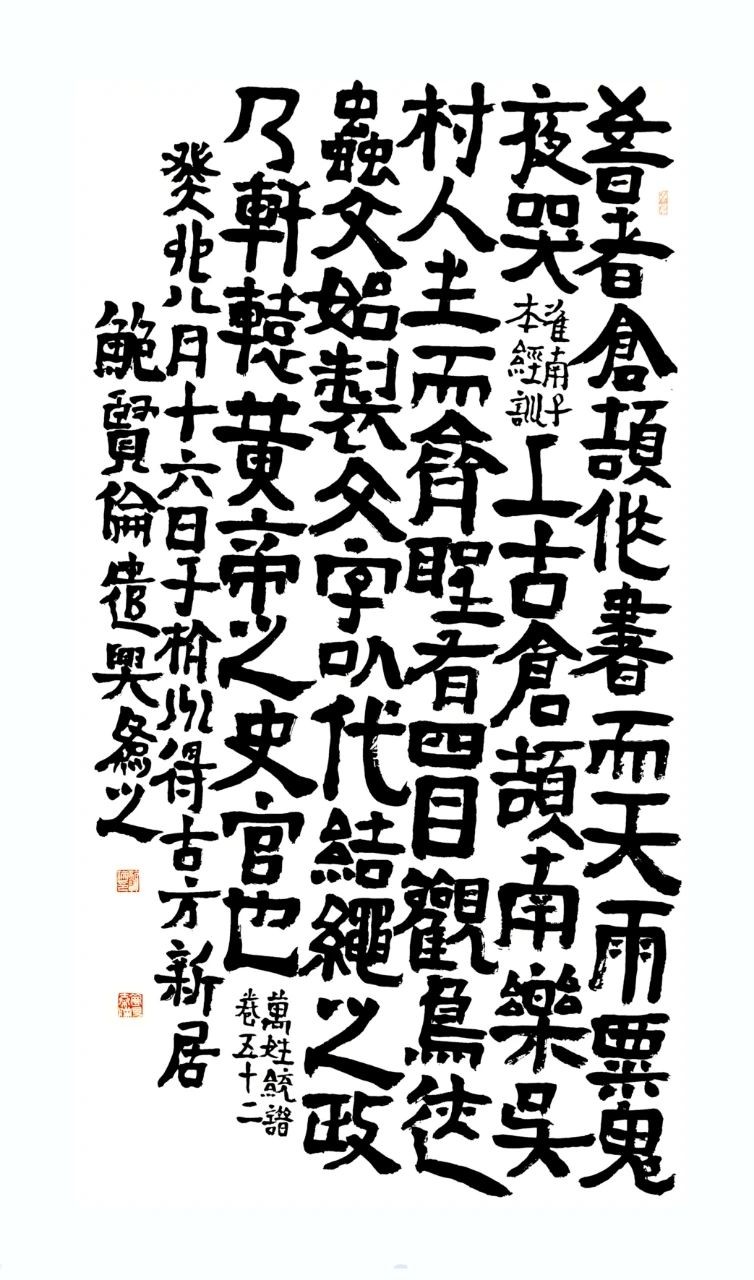 昔者倉頡作書而天雨粟鬼
夜哭
淮南子
本經訓
上古倉頡南樂吳
村人生而齊聖有四目觀鳥迹
蟲文始製文字以代結繩之政
乃軒轅黃帝之史官也
萬姓統譜
卷五十二
癸卯八月十六日于得古方新居
鮑賢倫遣興為之